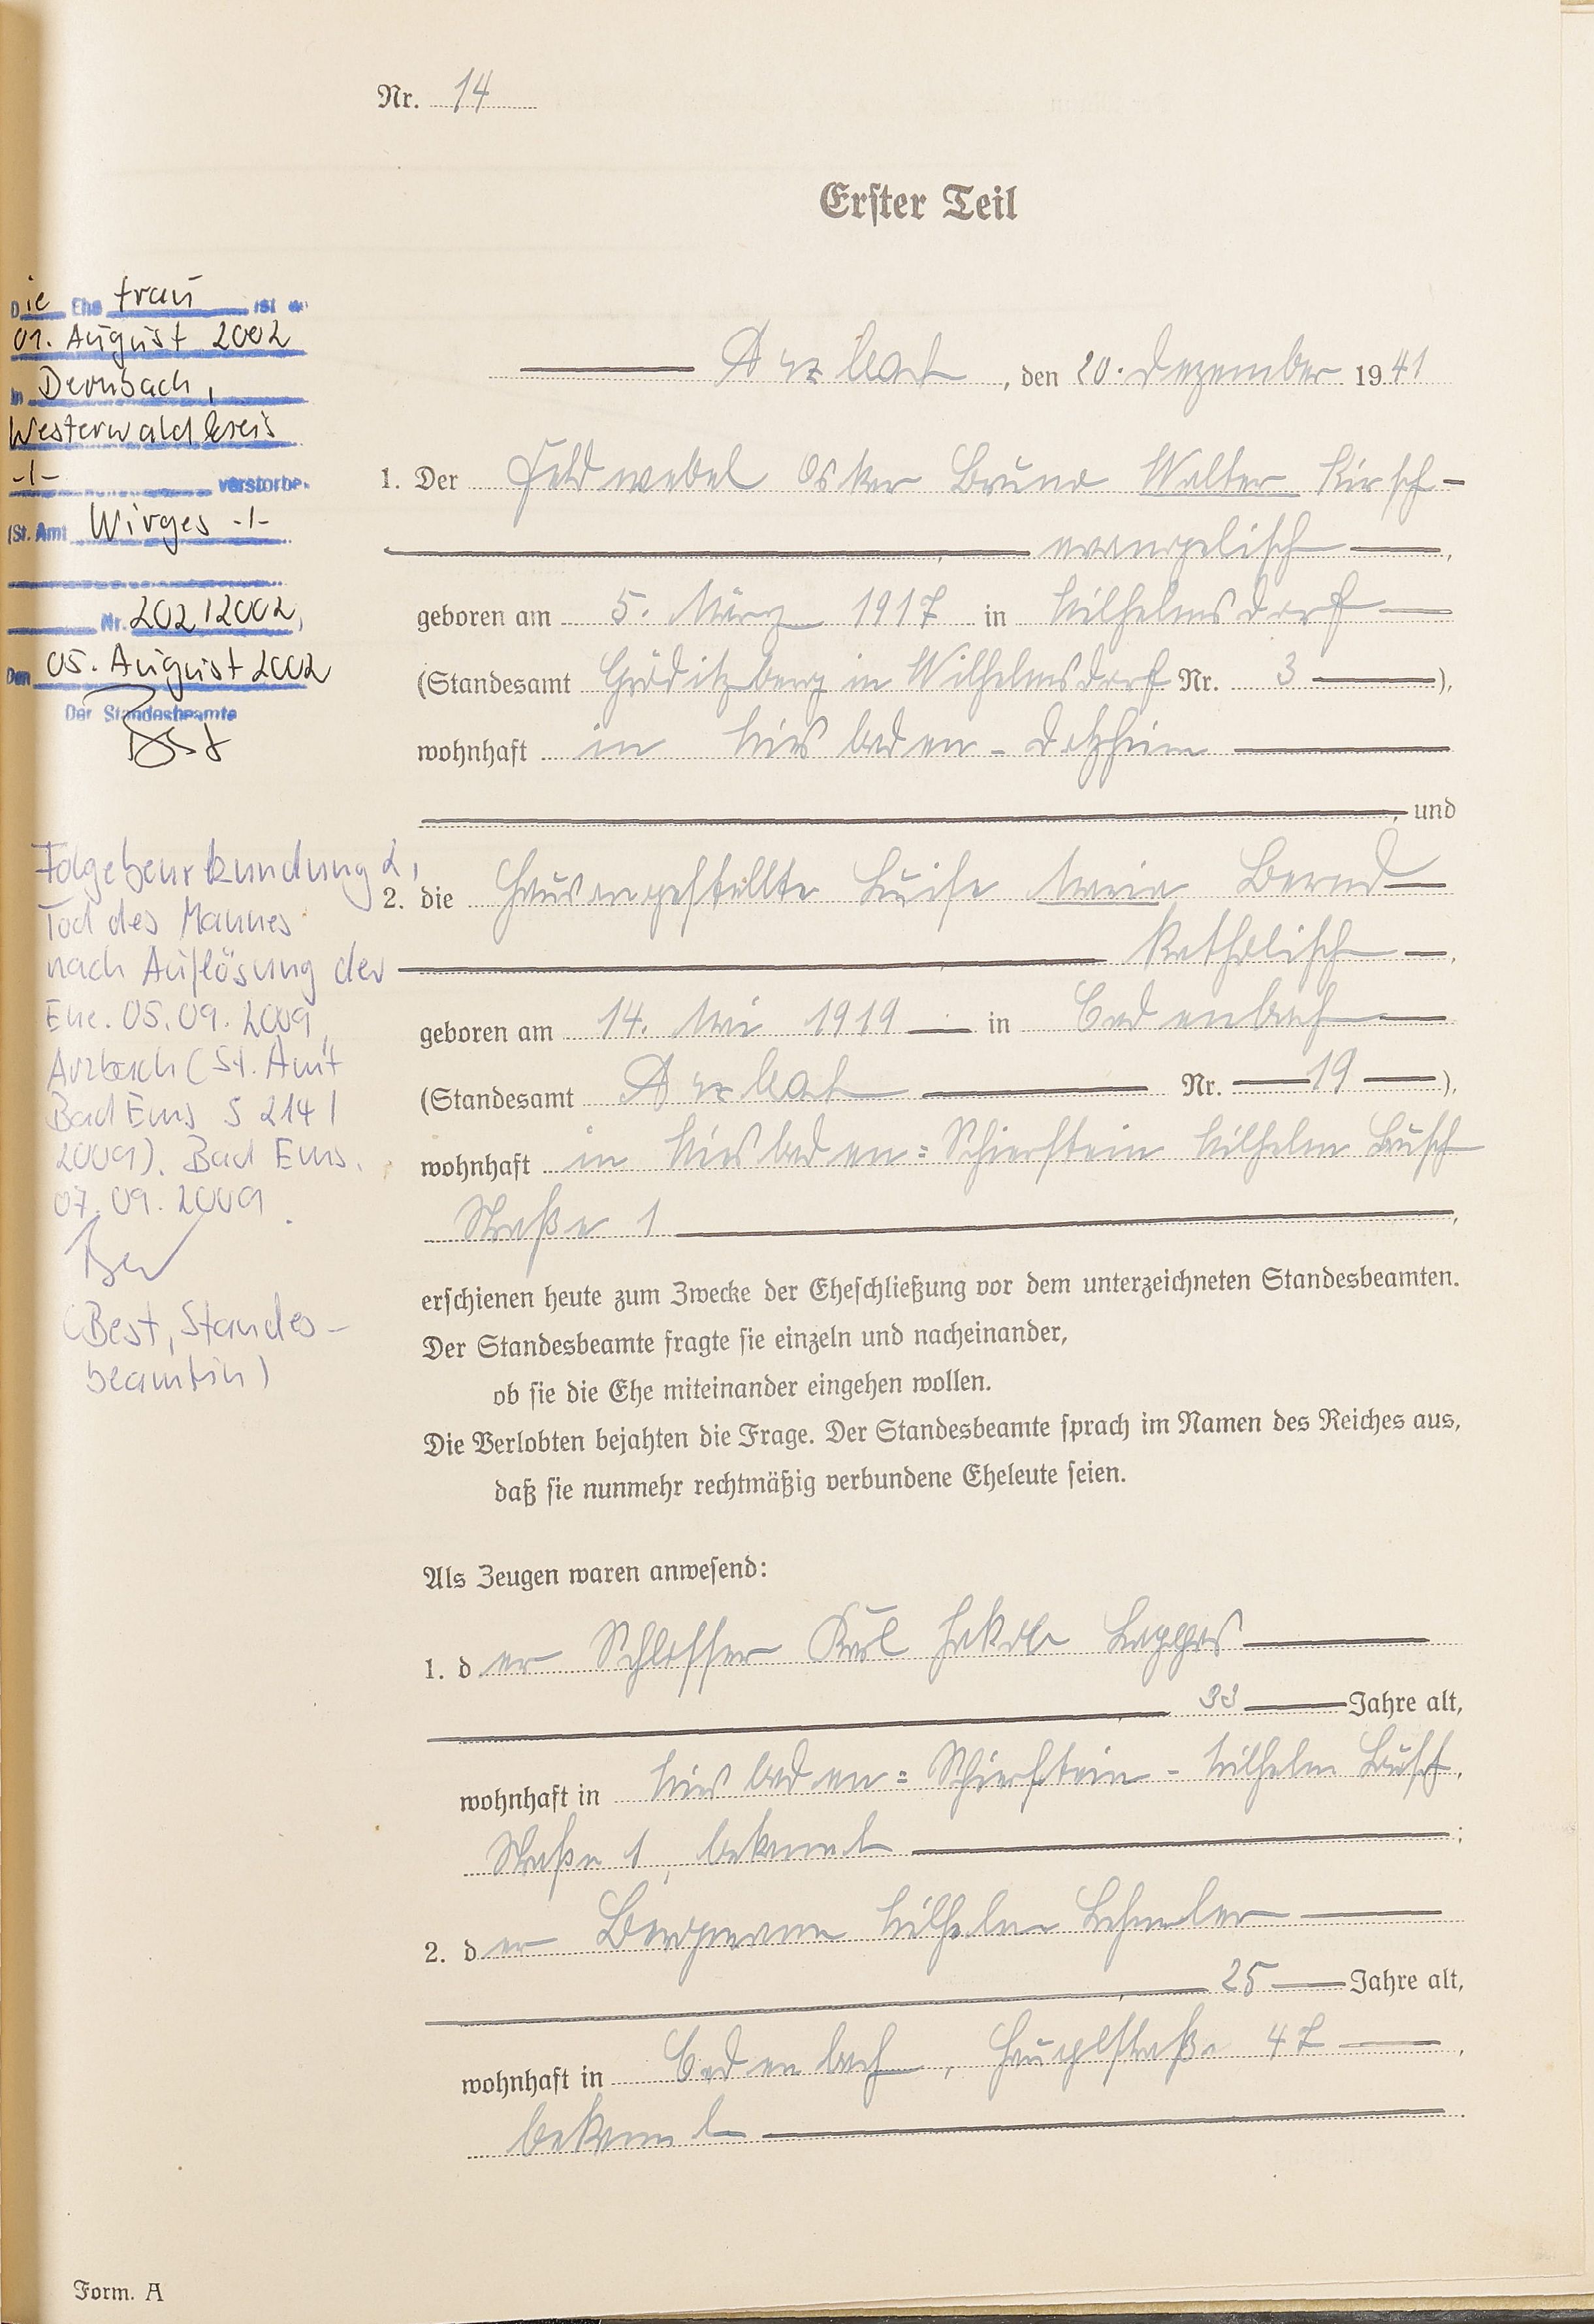 Nr. 14
Erster Teil
Arzbach, den 20. Dezember 1941
1. Der Feldwebel Oskar Bruno Walter Kirsch
evangelisch,
geboren am 5. März 1917 in Wilhelmsdorf
(Standesamt Gröditzberg in Wilhelmsdorf Nr. 3),
wohnhaft in Wiesbaden-Dotzheim
, und
2. die Hausangestellte Luise Maria Bernd
katholisch,
geboren am 14. Mai 1919 in Cadenbach
(Standesamt Arzbach Nr. 19),
wohnhaft in Wiesbaden=Schierstein Wilhelm Busch
Straße 1,
erschienen heute zum Zwecke der Eheschließung vor dem unterzeichneten Standesbeamten.
Der Standesbeamte fragte sie einzeln und nacheinander,
ob sie die Ehe miteinander eingehen wollen.
Die Verlobten bejahten die Frage. Der Standesbeamte sprach im Namen des Reiches aus,
daß sie nunmehr rechtmäßig verbundene Eheleute seien.
Als Zeugen waren anwesend:
1. der Schlosser Karl Jakob
, 33 Jahre alt,
wohnhaft in Wiesbaden=Schierstein - Wilhelm Busch
Straße 1, bekannt;
2. der Bergmann Wilhelm
, 25 Jahre alt,
wohnhaft in Cadenbach, Hauptstraße 47,
bekannt.
Form. A
Die Ehefrau ist a
01. August 2002
in Dernbach,
Westerwaldkreis
-/- verstorbe
(St. Amt Wirges -/-
Nr. 202/2002,
Den 05. August 2002
Der Standesbeamte
Best
Folgebeurkundung 2,
Tod des Mannes
nach Auflösung der
Ehe. 05.09.2009,
Arzbach (St. Amt
Bad Ems S 214/
2009). Bad Ems,
07.09.2009
(Best, Standes-
beamtin)